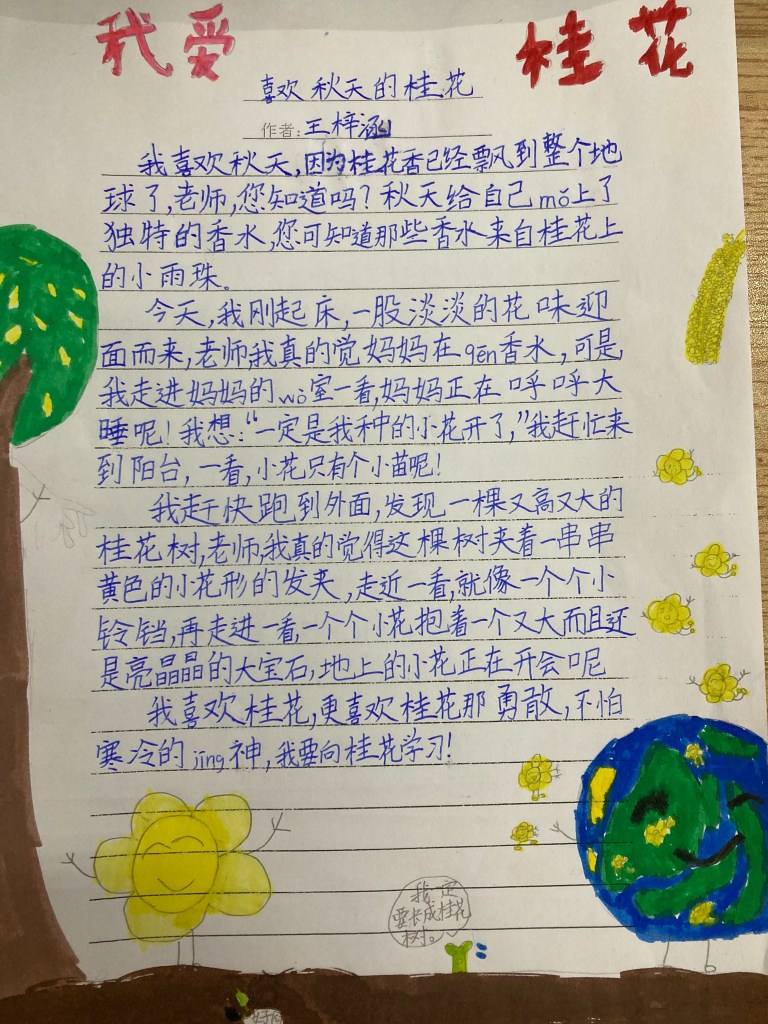 我爱 桂花
喜欢秋天的桂花
作者:王梓涵
我喜欢秋天,因为桂花香已经飘到整个地
球了,老师,您知道吗?秋天给自己mǒ上了
独特的香水,您可知道那些香水来自桂花上
的小雨珠。
今天,我刚起床,一股淡淡的花味迎
面而来,老师,我真的觉妈妈在qēn香水,可是
我走进妈妈的wò室一看,妈妈正在呼呼大
睡呢!我想:“一定是我种的小花开了,”我赶忙来
到阳台,一看,小花只有个小苗呢!
我赶快跑到外面,发现一棵又高又大的
桂花树,老师,我真的觉得这棵树夹着一串串
黄色的小花形的发夹,走近一看,就像一个个小
铃铛,再走进一看,一个个小花抱着一个又大而且还
是亮晶晶的大宝石,地上的小花正在开会呢
我喜欢桂花,更喜欢桂花那勇敢,不怕
寒冷的jīng神,我要向桂花学习!
我一定
要长成桂花
树。